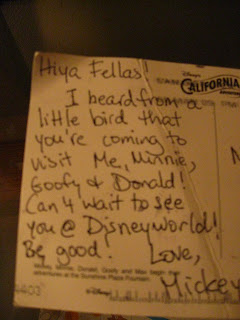 Hiya Fellas!
Disney's
CALIFORNIA
I heard from a
little bird that
you're coming to
visit Me, Minnie,
Goofy & Donald!
Can't wait to see
you @ Disneyworld!
Be good. Love,
Mickey
Mickey, Minnie, Donald, Goofy and Max begin their
adventures at the Sunshine Plaza Fountain.